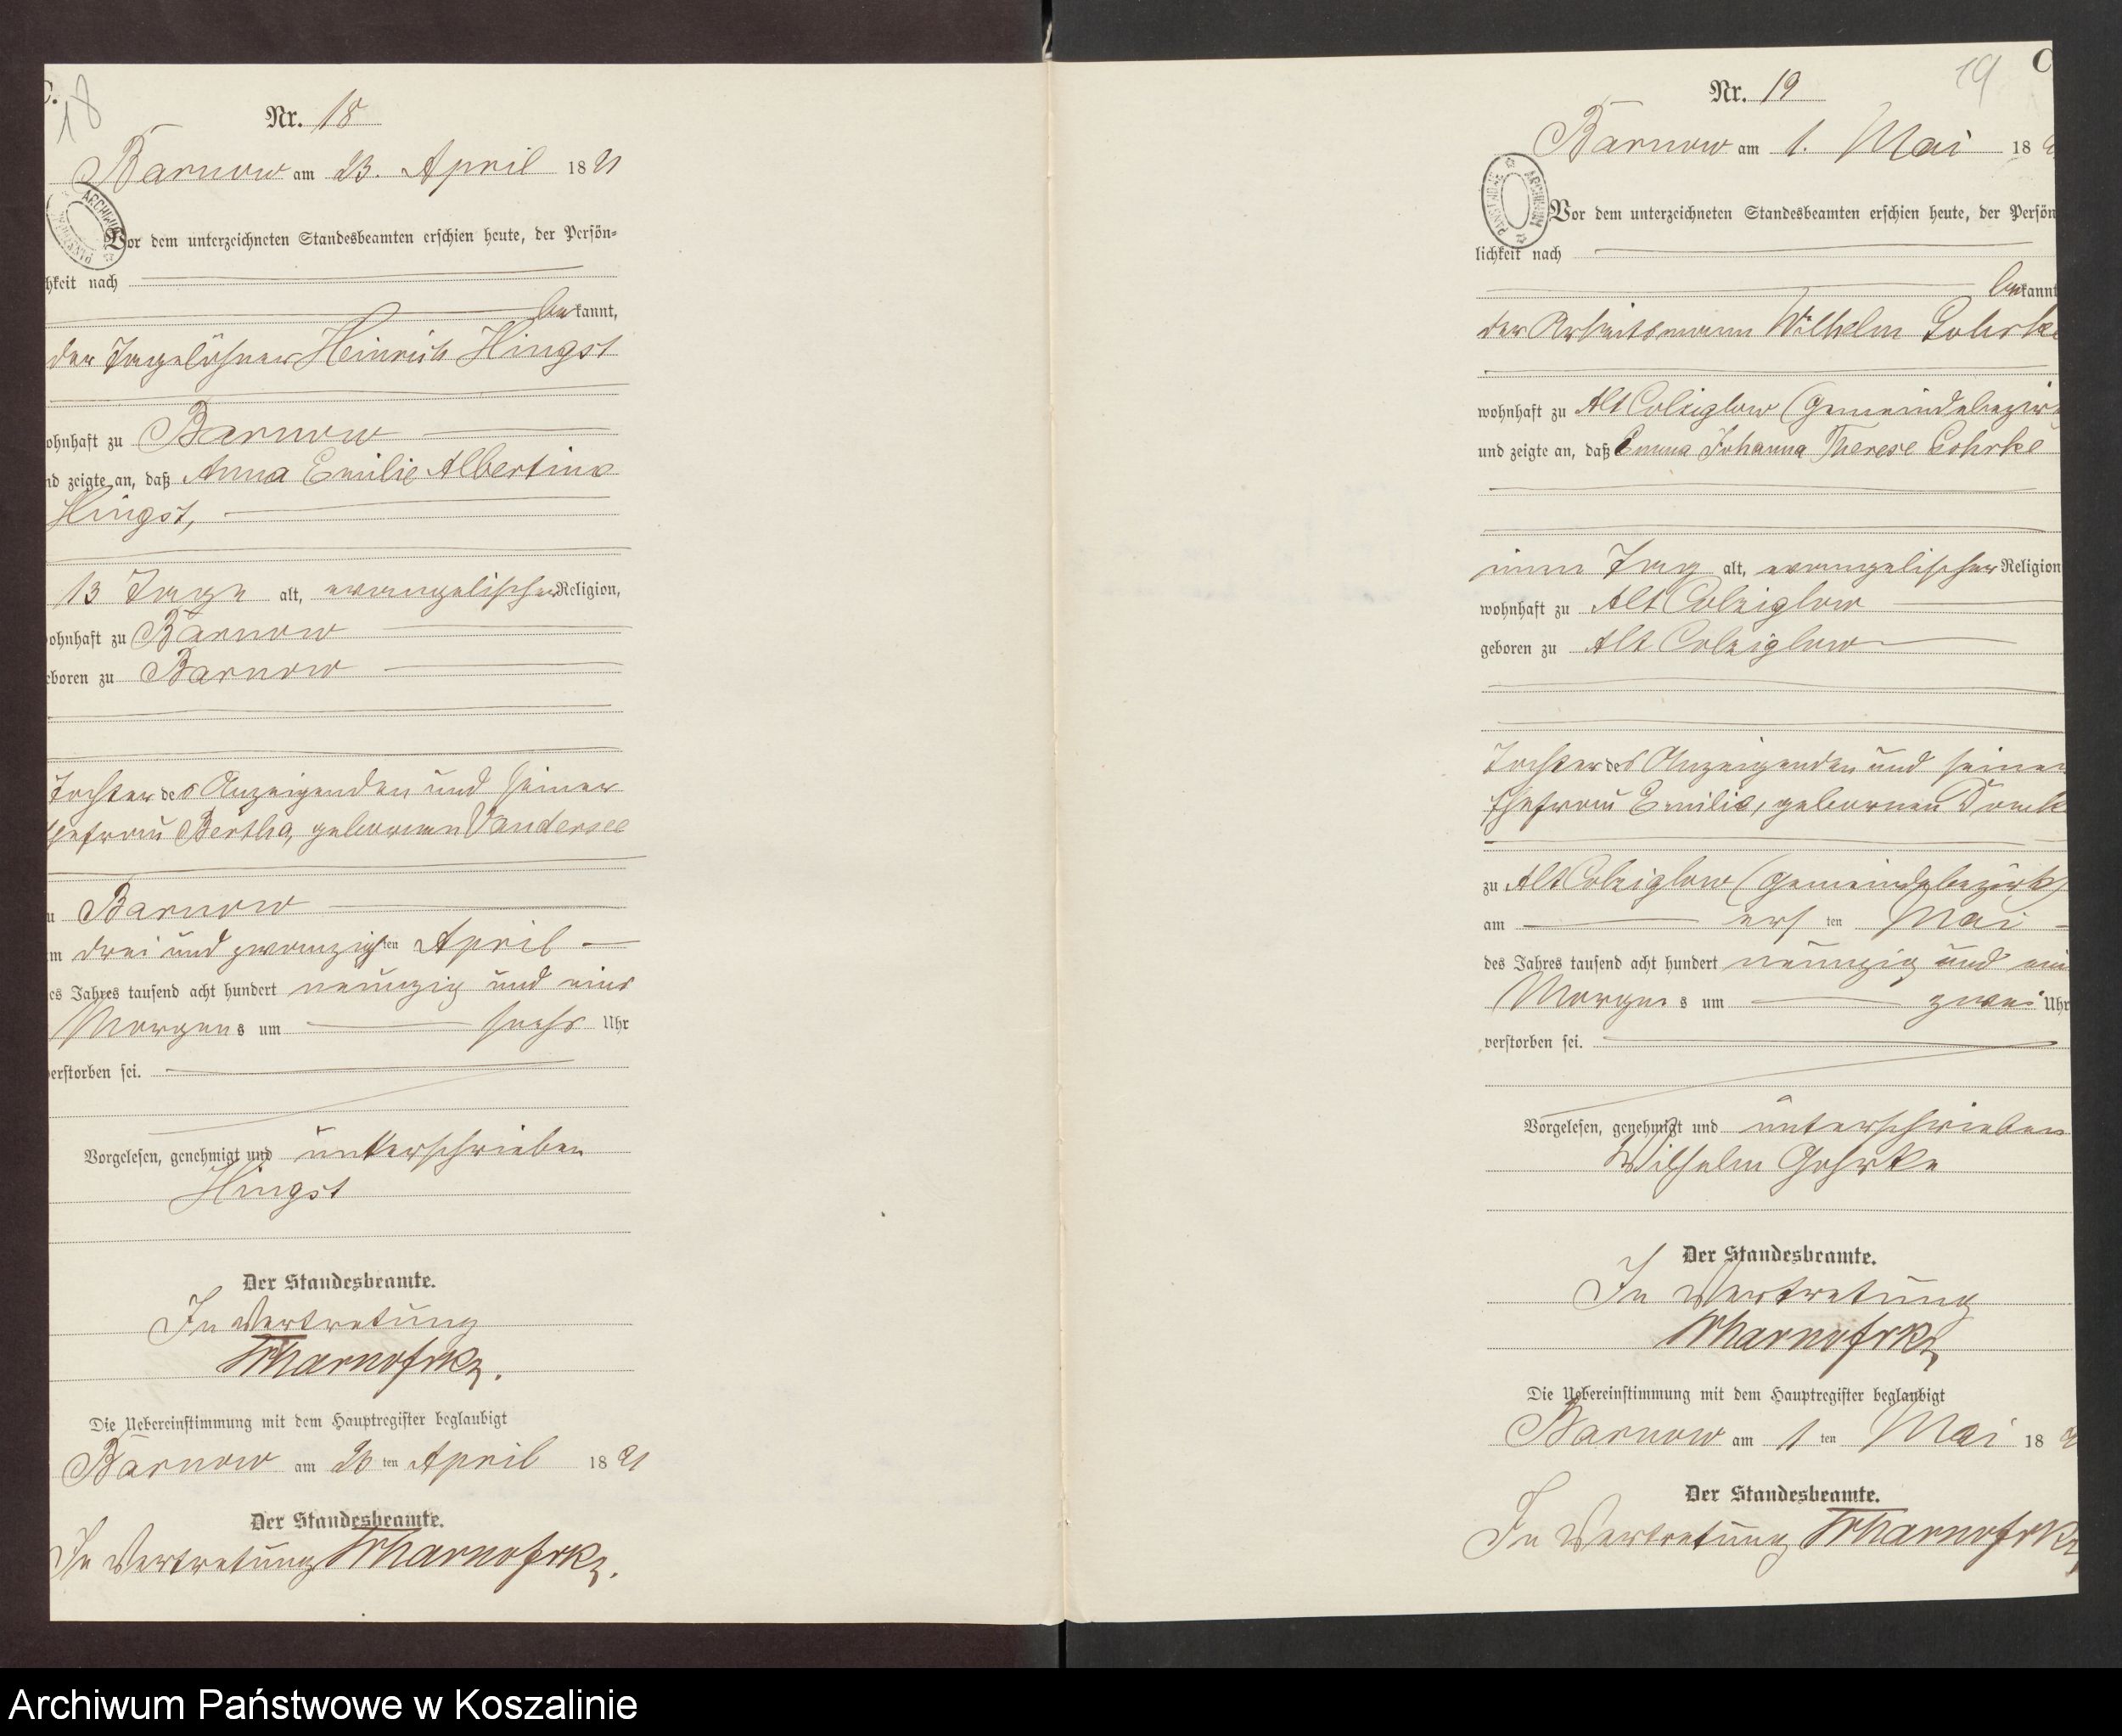 C.
18
Nr. 18
Barnow am 23. April 1891
Vor dem unterzeichneten Standesbeamten erschien heute, der Persön-
hkeit nach
bekannt,
der Tagelöhner Heinrich Hingst
ohnhaft zu Barnow
nd zeigte an, daß Anna Emilie Albertine
Hingst,
13 Tage alt, evangelischer Religion,
ohnhaft zu Barnow
eboren zu Barnow
Tochter des Anzeigenden und seiner
Ehefrau Bertha, geborenen Vandersee
u Barnow
m drei und zwanzigsten April
es Jahres tausend acht hundert neunzig und eins
Morgens um sechs Uhr
verstorben sei.
Vorgelesen, genehmigt und unterschrieben
Hingst
Der Standesbeamte.
In Vertretung
Die Uebereinstimmung mit dem Hauptregister beglaubigt
Barnow am 26 ten April 1891
Der Standesbeamte.
In Vertretung
C
19
Nr. 19
Barnow am 1. Mai 189
Vor dem unterzeichneten Standesbeamten erschien heute, der Persön
lichkeit nach
bekannt
der Arbeitsmann Wilhelm Gohrke
wohnhaft zu Alt Colziglow (Gemeindebezirk
und zeigte an, daß Emma Johanna Therese Gohrke
einen Tag alt, evangelischer Religion
wohnhaft zu Alt Colziglow
geboren zu Alt Colziglow
Tochter des Anzeigenden und seiner
Ehefrau Emilie, geborenen
zu Alt Colziglow (Gemeindebezirk)
am ersten Mai
des Jahres tausend acht hundert neunzig und ein
Morgens um zwei Uhr
verstorben sei.
Vorgelesen, genehmigt und unterschrieben
Wilhelm Gohrke
Der Standesbeamte.
In Vertretung
Die Uebereinstimmung mit dem Hauptregister beglaubigt
Barnow am 1 ten Mai 189
Der Standesbeamte.
In Vertretung
Archiwum Państwowe w Koszalinie